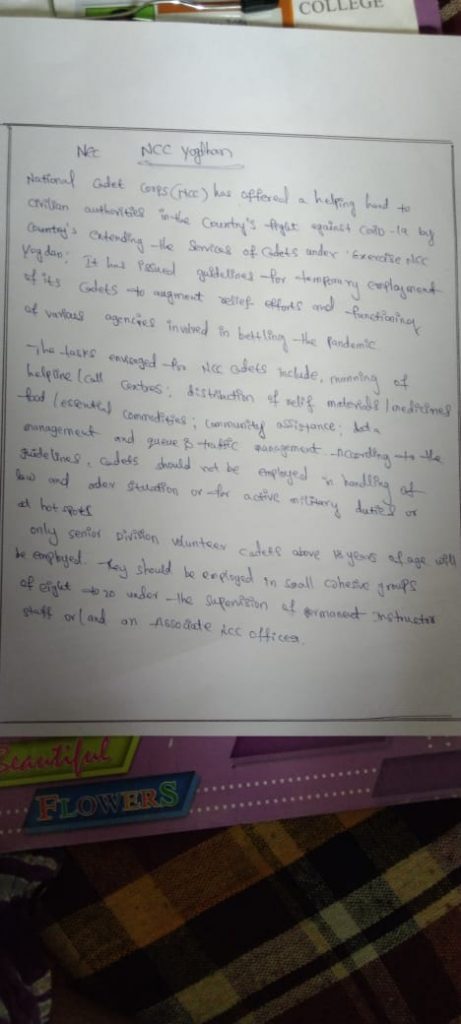 COLLEGE
Ncc NCC Yogthan
National Cadet Corps (NCC) has offered a helping hand to
civilian authorities in the Country's fight against Covid-19 by
Country's extending the Services of Cadets under 'Exercise NCC
Yogdan'. It has issued guidelines for temporary employment
of its Cadets to augment relief efforts and functioning
of various agencies involved in battling the pandemic
The tasks envisaged for NCC Cadets include, manning of
helpline / call Centres; distribution of relif materials / medicines
food / essential Commodities; Community assistance; data
management and queue & traffic management. According to the
guidelines, cadets should not be employed in handling of
law and oder situation or for active military duties or
at hot spots
only senior Division volunteer cadets above 18 years of age will
be employed. They should be employed in small cohesive groups
of eight to 20 under the supervision of permanent instructor
staff or / and an Associate NCC officer.
Beautiful
FLOWERS